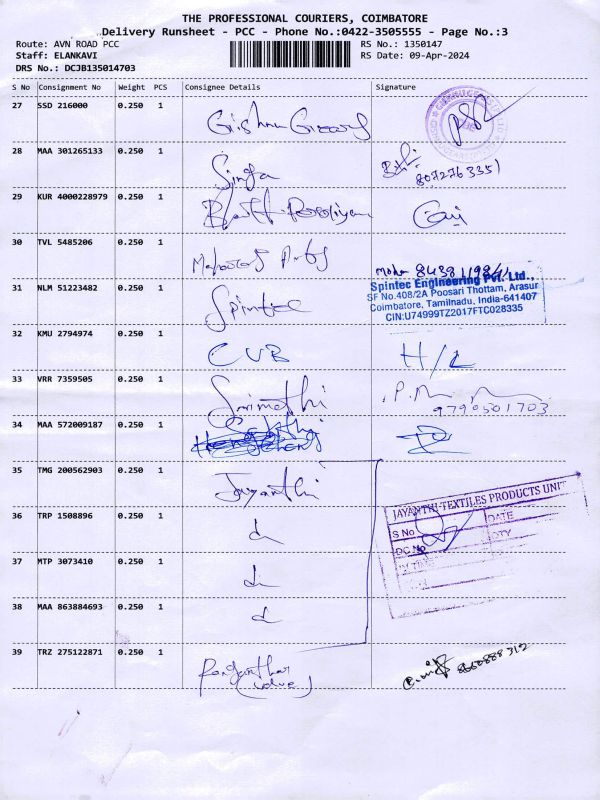 THE PROFESSIONAL COURIERS, COIMBATORE
Delivery Runsheet - PCC - Phone No.:0422-3505555 - Page No.:3
Route: AVN ROAD PCC RS No.: 1350147
Staff: ELANKAVI RS Date: 09-Apr-2024
DRS No.: DCJB135014703
S No Consignment No Weight PCS Consignee Details Signature
27 SSD 216000 0.250 1
28 MAA 301265133 0.250 1 Singa
8072763351
29 KUR 4000228979 0.250 1
30 TVL 5485206 0.250 1
31 NLM 51223482 0.250 1 Spintec
Spintec Engineering Pvt. Ltd.,
SF No.408/2A Poosari Thottam, Arasur
Coimbatore, Tamilnadu, India-641407
CIN:U74999TZ2017FTC028335
32 KMU 2794974 0.250 1 CUB H/L
33 VRR 7359505 0.250 1 Srimathi
9790501703
34 MAA 572009187 0.250 1 Sakthi
35 TMG 200562903 0.250 1 Jayanthi
JAYANTHI TEXTILES PRODUCTS UNIT
S No DATE
DC No QTY
IN TIME
36 TRP 1508896 0.250 1
37 MTP 3073410 0.250 1
38 MAA 863884693 0.250 1
39 TRZ 275122871 0.250 1
8660888312